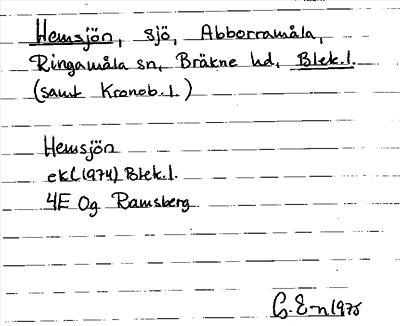 Hemsjön, sjö, Abborramåla,
Ringamåla sn, Bräkne hd, Blek.l.
(samt Kronob.l.)
Hemsjön
ekl(1974) Blek.l.
4E Og Ramsberg
G.E-n 1975